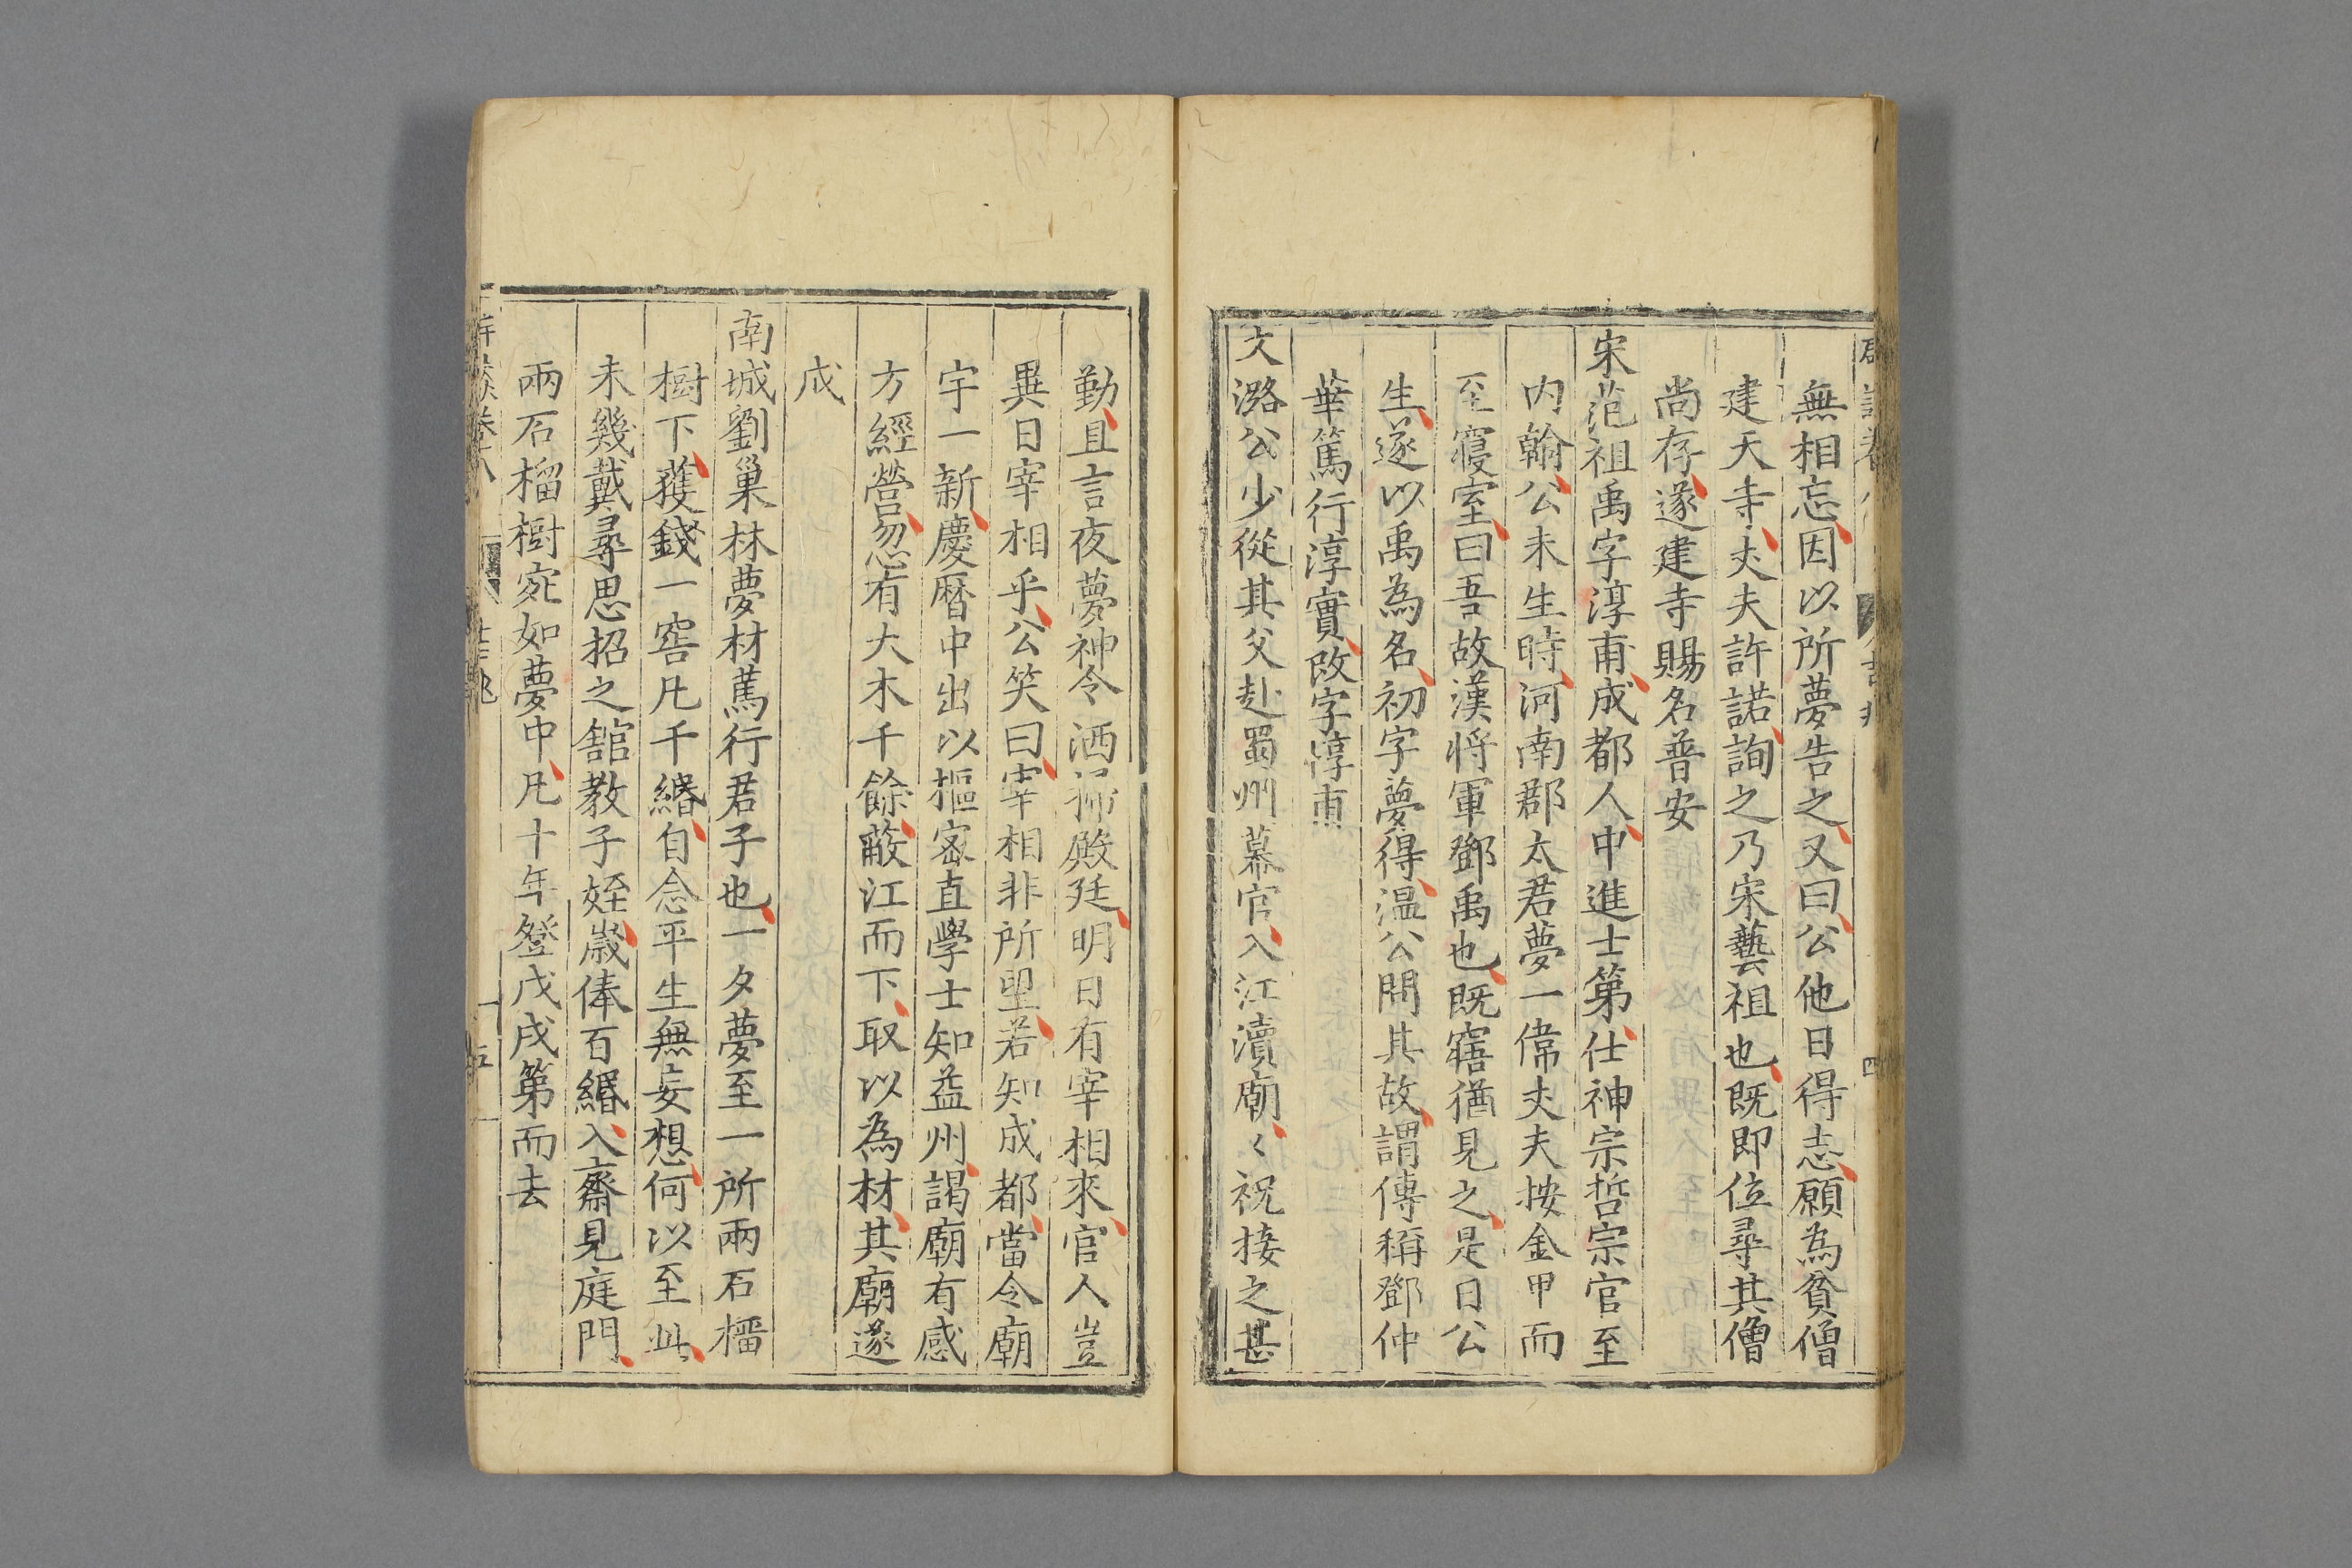 無相忘因以所夢告之又曰公他日得志願為貧僧
建天寺丈夫許諾詢之乃宋藝祖也既即位尋其僧
尚存遂建寺賜名普安
宋范祖禹字淳甫成都人中進士第仕神宗哲宗官至
內翰公未生時河南郡太君夢一偉丈夫按金甲而
至寢室曰吾故漢將軍鄧禹也既寤猶見之是日公
生遂以禹為名初字夢得溫公問其故謂傳稱鄧仲
華篤行淳實改字淳甫
文潞公少從其父赴蜀州幕官入江瀆廟〻祝接之甚
勤且言夜夢神令洒掃殿廷明日有宰相來官人豈
異日宰相乎公笑曰宰相非所望若知成都當令廟
宇一新慶曆中出以樞密直學士知益州謁廟有感
方經營忽有大木千餘蔽江而下取以為材其廟遂
成
南城劉巢林夢材篤行君子也一夕夢至一所兩石榴
樹下獲錢一窖凡千緡自念平生無妄想何以至此
未幾戴尋思招之館教子姪歲俸百緡入齋見庭門
兩石榴樹宛如夢中凡十年登戊戌第而去